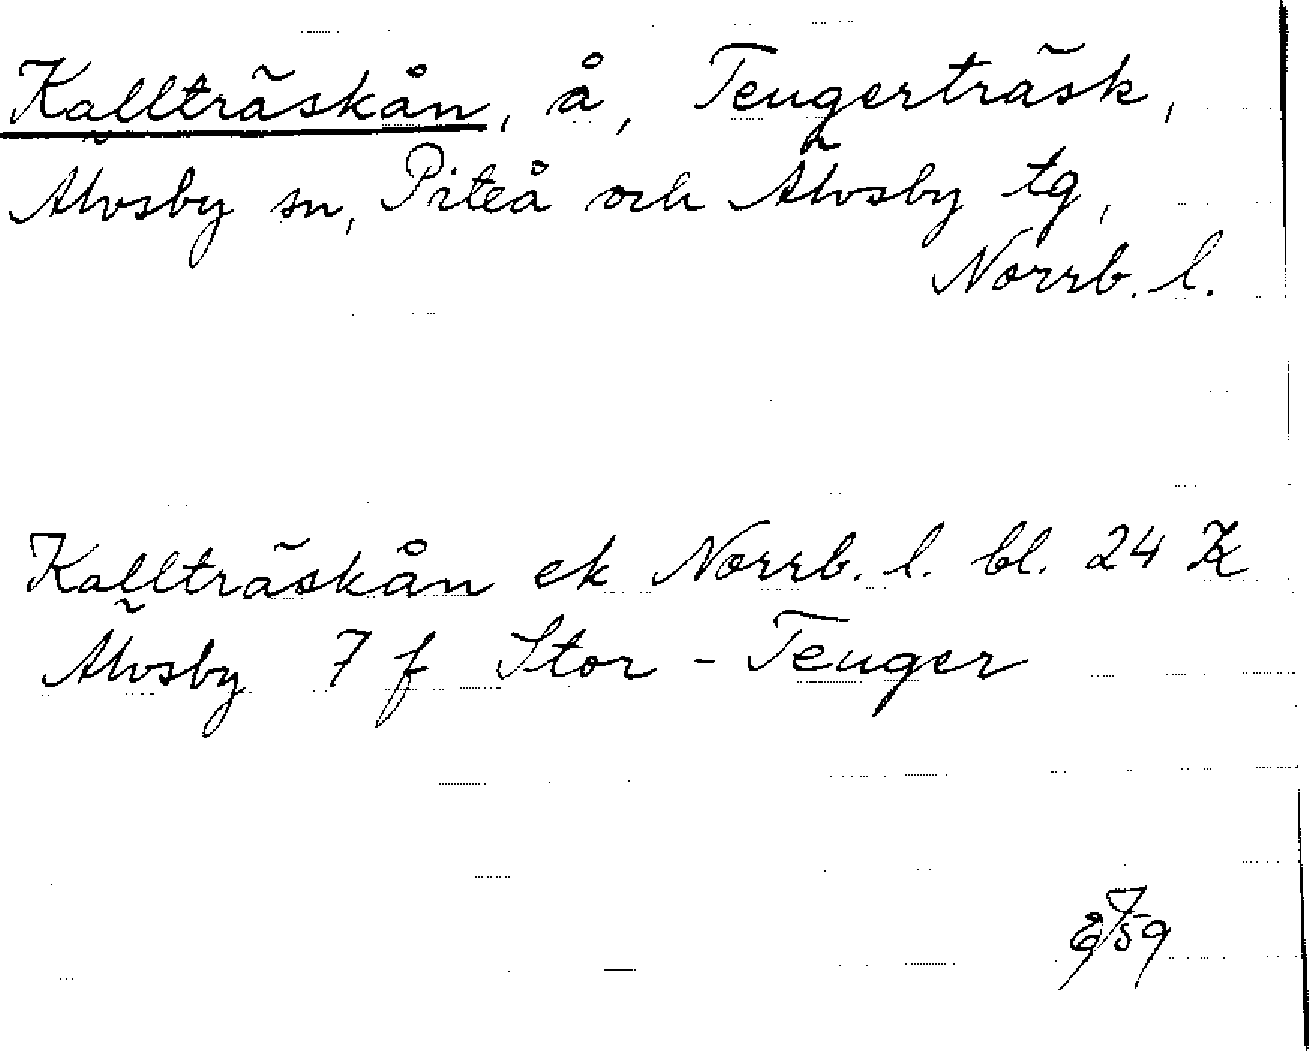 Kallträskån, å, Teugerträsk,
Älvsby sn, Piteå och Älvsby tg,
Norrb. l.
Kallträskån ek Norrb. l. bl. 24 K
Älvsby 7 f Stor-Teuger